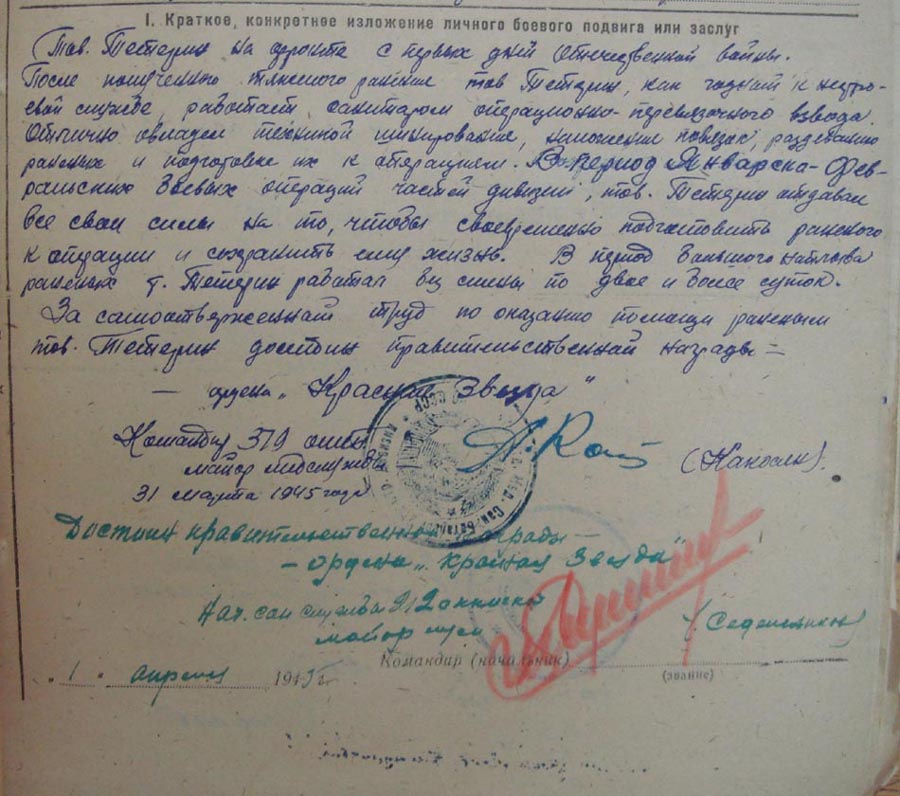 I. Краткое, конкретное изложение личного боевого подвига или заслуг
Тов. Тетерин на фронте с первых дней Отечественной войны.
После полученного тяжелого ранения тов Тетерин, как годный к нестрое-
вой службе, работает санитаром операционно-перевязочного взвода.
Отлично овладел техникой шинирования, наложение повязок, раздеванию
раненых и подготовке их к операциям. В период Январско-Фев-
ральских боевых операций частей дивизии, тов. Тетерин отдавал
все свои силы на то, чтобы своевременно подготовить раненого
к операции и сохранить ему жизнь. В период большого наплыва
раненых т. Тетерин работал без смены по двое и более суток.
За самоотверженный труд по оказанию помощи раненым
тов. Тетерин достоин правительственной награды —
— ордена „Красная Звезда"
Командир 379
майор медслужбы
31 марта 1945 года
Достоин правительственной награды —
— Ордена „Красная Звезда"
Нач. сан службы
майор
Командир (начальник)
(звание)
„1" апреля 1945 г.